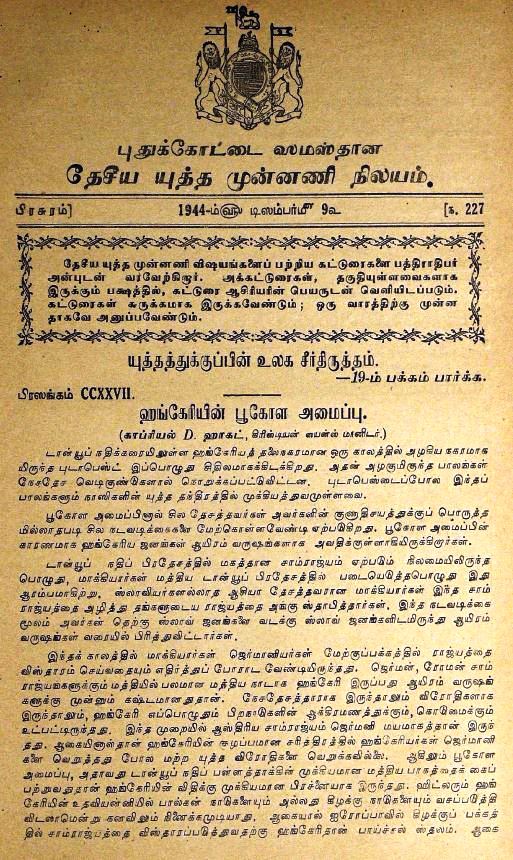 புதுக்கோட்டை ஸமஸ்தான
தேசீய யுத்த முன்னணி நிலயம்.
பிரசுரம்] 1944-ம்௵ டிஸம்பர்௴ 9௳ [ந. 227
தேசீய யுத்த முன்னணி விஷயங்களைப் பற்றிய கட்டுரைகளை பத்திராதிபர்
அன்புடன் வரவேற்கிறார். அக்கட்டுரைகள், தகுதியுள்ளவைகளாக
இருக்கும் பக்ஷத்தில், கட்டுரை ஆசிரியரின் பெயருடன் வெளியிடப்படும்.
கட்டுரைகள் சுருக்கமாக இருக்கவேண்டும்; ஒரு வாரத்திற்கு முன்ன
தாகவே அனுப்பவேண்டும்.
யுத்தத்துக்குப்பின் உலக சீர்திருத்தம்.
—19-ம் பக்கம் பார்க்க.
பிரஸங்கம் CCXXVII.
ஹங்கேரியின் பூகோள அமைப்பு.
(காப்ரியல் D. ஹாகட், கிரிஸ்டியன் ஸைன்ஸ் மானிடர்.)
டான்யூப் நதிக்கரையிலுள்ள ஹங்கேரியத் தலைநகரமான ஒரு காலத்தில் அழகிய நகரமாக
யிருந்த புடாபெஸ்ட் இப்பொழுது சிதிலமாகக்கிடக்கிறது. அதன் அழகுமிகுந்த பாலங்கள்
நேசதேச வெடிகுண்டுகளால் நொறுக்கப்பட்டுவிட்டன. புடாபெஸ்டைப்போல இந்தப்
பாலங்களும் நாஸிகளின் யுத்த தந்திரத்தில் முக்கியத்துவமுள்ளவை.
பூகோள அமைப்பினால் சில தேசத்தவர்கள் அவர்களின் குணாதிசயத்துக்குப் பொருத்த
மில்லாதபடி சில நடவடிக்கைகளை மேற்கொள்ளவேண்டி ஏற்படுகிறது. பூகோள அமைப்பின்
காரணமாக ஹங்கேரிய ஜனங்கள் ஆயிரம் வருஷங்களாக அவதிக்குள்ளாகியிருக்கிறார்கள்.
டான்யூப் நதிப் பிரதேசத்தில் மகத்தான சாம்ராஜ்யம் ஏற்படும் நிலைமையிலிருந்த
பொழுது, மாக்கியார்கள் மத்திய டான்யூப் பிரதேசத்தில் படையெடுத்தபொழுது இது
ஆரம்பமாகிறது. ஸ்லாவியர்களல்லாத ஆசியா தேசத்தவரான மாக்கியார்கள் இந்த சாம்
ராஜ்யத்தை அழித்து தங்களுடைய ராஜ்யத்தை அங்கு ஸ்தாபித்தார்கள். இந்த நடவடிக்கை
மூலம் அவர்கள் தெற்கு ஸ்லாவ் ஜனங்களை வடக்கு ஸ்லாவ் ஜனங்களிடமிருந்து ஆயிரம்
வருஷங்கள் வரையில் பிரித்துவிட்டார்கள்.
இந்தக் காலத்தில் மாக்கியார்கள், ஜெர்மானியர்கள் மேற்குப்பக்கத்தில் ராஜ்யத்தை
விஸ்தாரம் செய்வதையும் எதிர்த்துப் போராட வேண்டியிருந்தது. ஜெர்மன், ரோமன் சாம்
ராஜ்யங்களுக்கும் மத்தியில் பலமான மத்திய நாடாக ஹங்கேரி இருப்பது ஆயிரம் வருஷங்
களுக்கு முன்னும் கஷ்டமானதுதான். நேசதேசத்தாராக இருந்தாலும் விரோதிகளாக
இருந்தாலும், ஹங்கேரி எப்பொழுதும் பிறநாடுகளின் ஆக்கிரமணத்துக்கும், கொடுமைக்கும்
உட்பட்டிருந்தது. இந்த முறையில் ஆஸ்திரிய சாம்ராஜ்யம் ஜெர்மனி மயமாகத்தான் இருந்
தது. ஆகையினால்தான் ஹங்கேரியின் குழப்பமான சரித்திரத்தில் ஹங்கேரியர்கள் ஜெர்மானி
களை வெறுத்தது போல மற்ற யுத்த விரோதிகளை வெறுக்கவில்லை. ஆகிலும் பூகோள
அமைப்பு, அதாவது டான்யூப் நதிப் பள்ளத்தாக்கின் முக்கியமான மத்திய பாகத்தைக்கைப்
பற்றுவதுதான் ஹங்கேரியின் விதிக்கு முக்கியமான பிரச்னையாக இருந்தது. ஹிட்லரும் ஹங்
கேரியின் உதவியன்னியில் பால்கன் நாடுகளையும் அல்லது கிழக்கு நாடுகளையும் வசப்படுத்தி
விடலாமென்று கனவிலும் நினைக்கமுடியாது. ஆகையால் ஐரோப்பாவில் கிழக்குப் பக்கத்
தில் சாம்ராஜ்யத்தை விஸ்தாரப்படுத்துவதற்கு ஹங்கேரிதான் பாய்ச்சல் ஸ்தலம். ஆகை